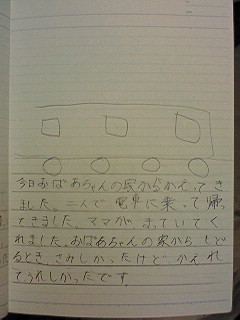 今日おばあちゃんの家からかえってき
ました。二人で電車に乗って帰っ
てきました。ママが、まっていてく
れました。おばあちゃんの家からもど
るとき、さみしかったけど、かえれ
てうれしかったです